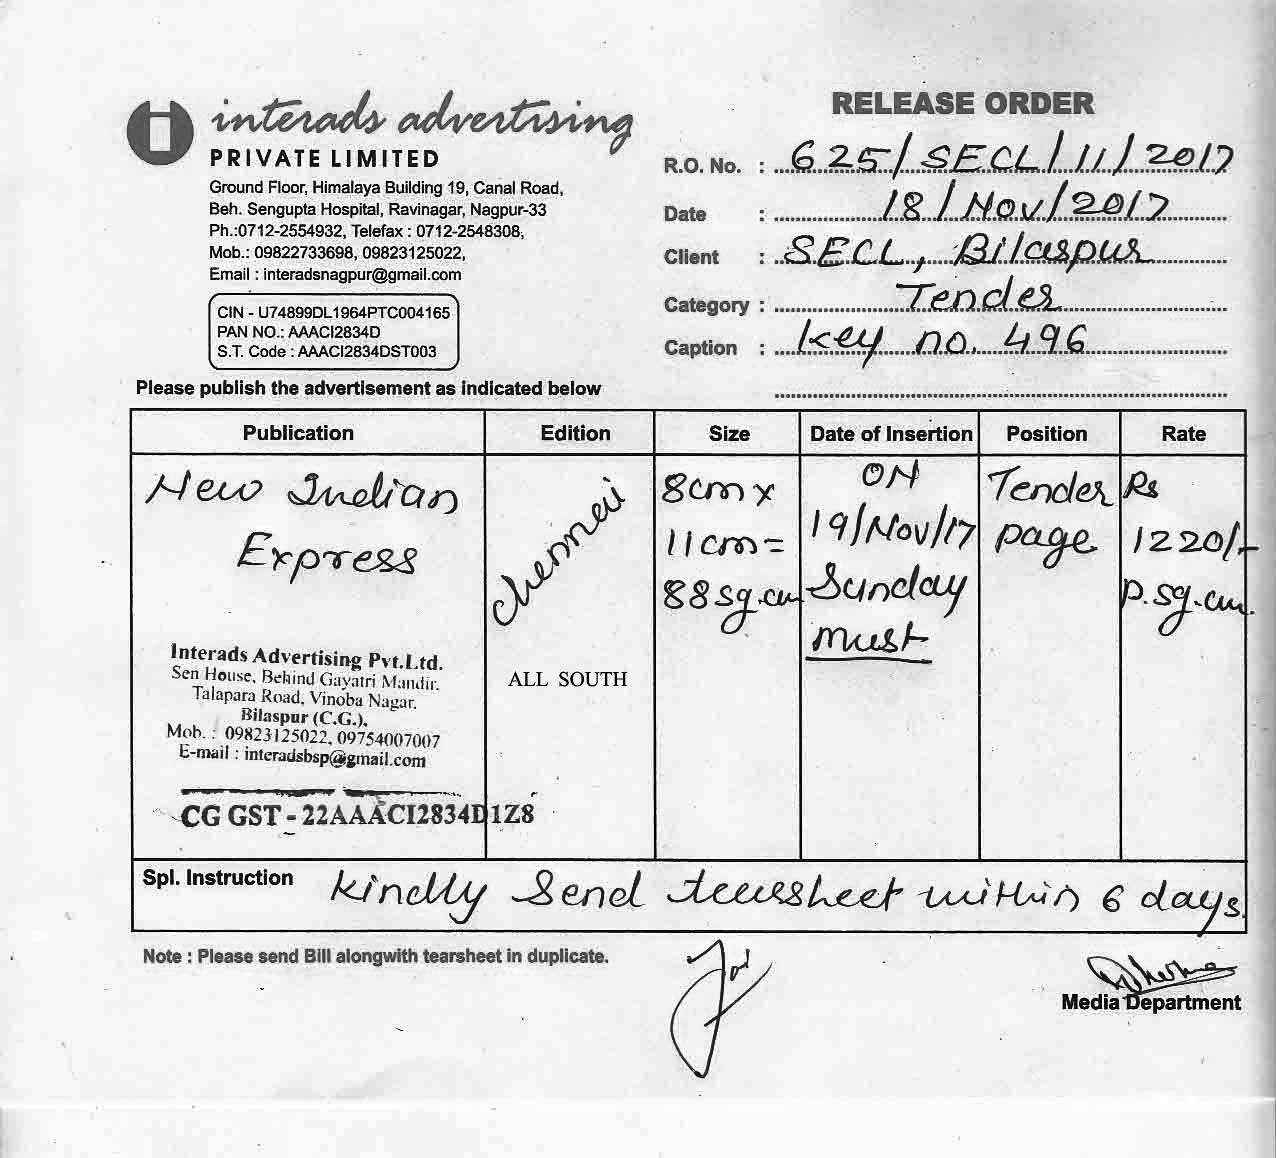 interads advertising
PRIVATE LIMITED
Ground Floor, Himalaya Building 19, Canal Road,
Beh. Sengupta Hospital, Ravinagar, Nagpur-33
Ph.:0712-2554932, Telefax : 0712-2548308,
Mob.: 09822733698, 09823125022,
Email : interadsnagpur@gmail.com
CIN - U74899DL1964PTC004165
PAN NO.: AAACI2834D
S.T. Code : AAACI2834DST003
RELEASE ORDER
R.O. No. : 625/SECL/11/2017
Date : 18/Nov/2017
Client : SECL, Bilaspur
Category : Tender
Caption : key no. 496
Please publish the advertisement as indicated below
Publication Edition Size Date of Insertion Position Rate
New Indian
Express
Chennai
ALL SOUTH
8cm x
11cm=
88sq.cm
ON
19/Nov/17
Sunday
must
Tender
page
Rs
1220/-
p.sq.cm.
Interads Advertising Pvt.Ltd.
Sen House, Behind Gayatri Mandir.
Talapara Road, Vinoba Nagar.
Bilaspur (C.G.),
Mob. : 09823125022, 09754007007
E-mail : interadsbsp@gmail.com
CG GST - 22AAACI2834D1Z8
Spl. Instruction kindly send tearsheet within 6 days.
Note : Please send Bill alongwith tearsheet in duplicate.
Media Department